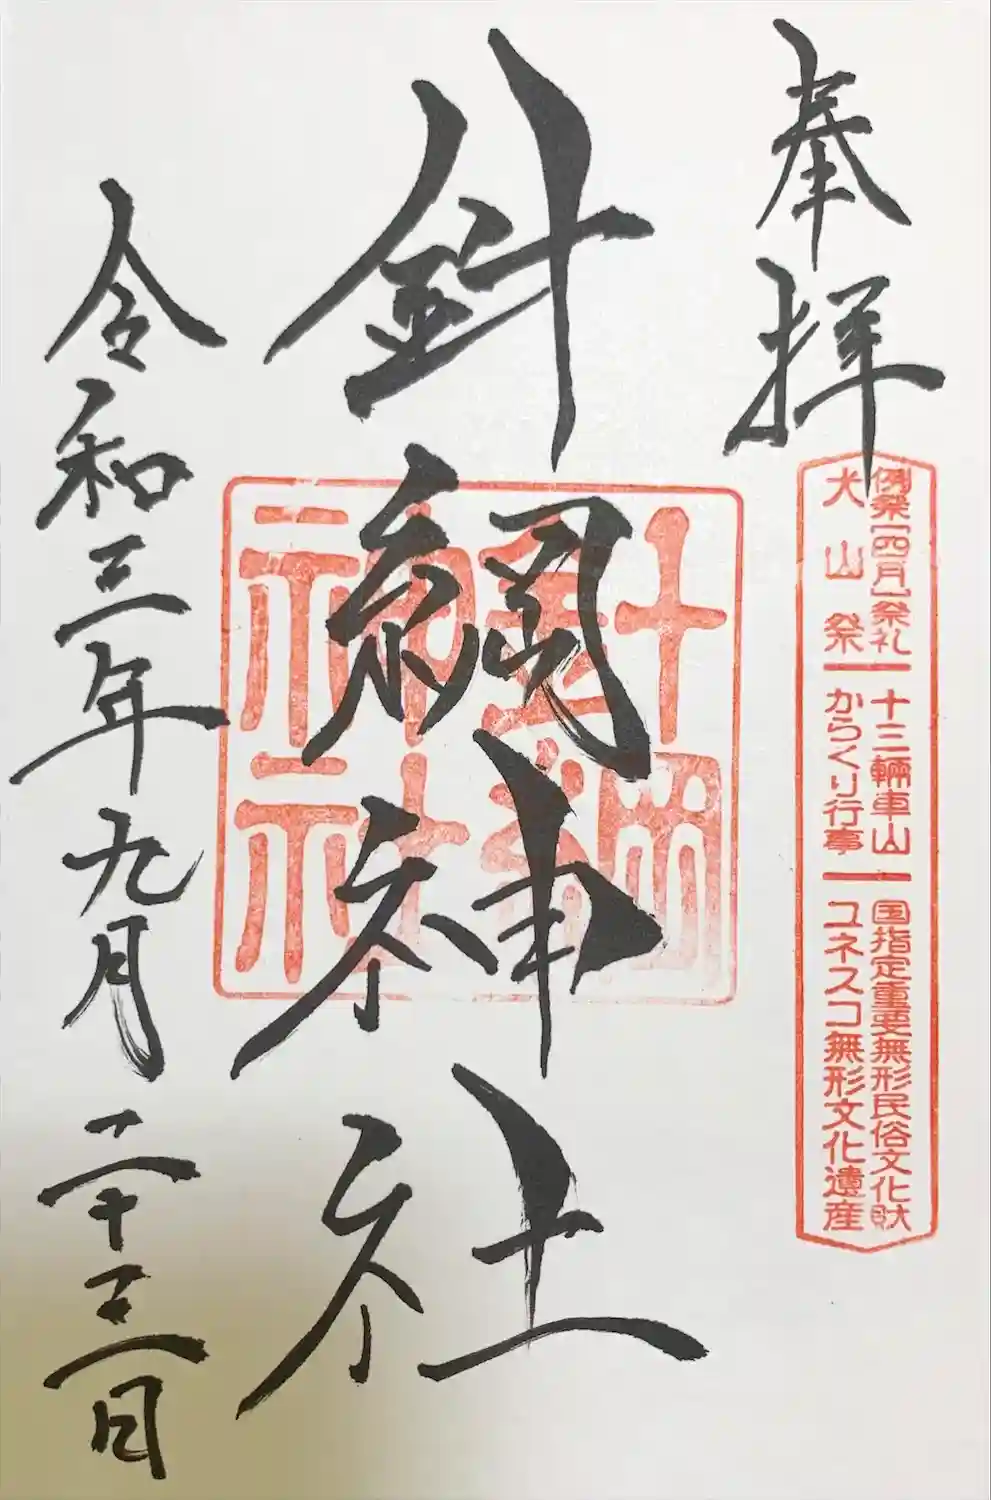 奉拝
例祭[四月]祭礼 十三輛車山 国指定重要無形民俗文化財
犬山祭 からくり行事 ユネスコ無形文化遺産
針綱神社
針綱
神社
令和三年九月二十三日